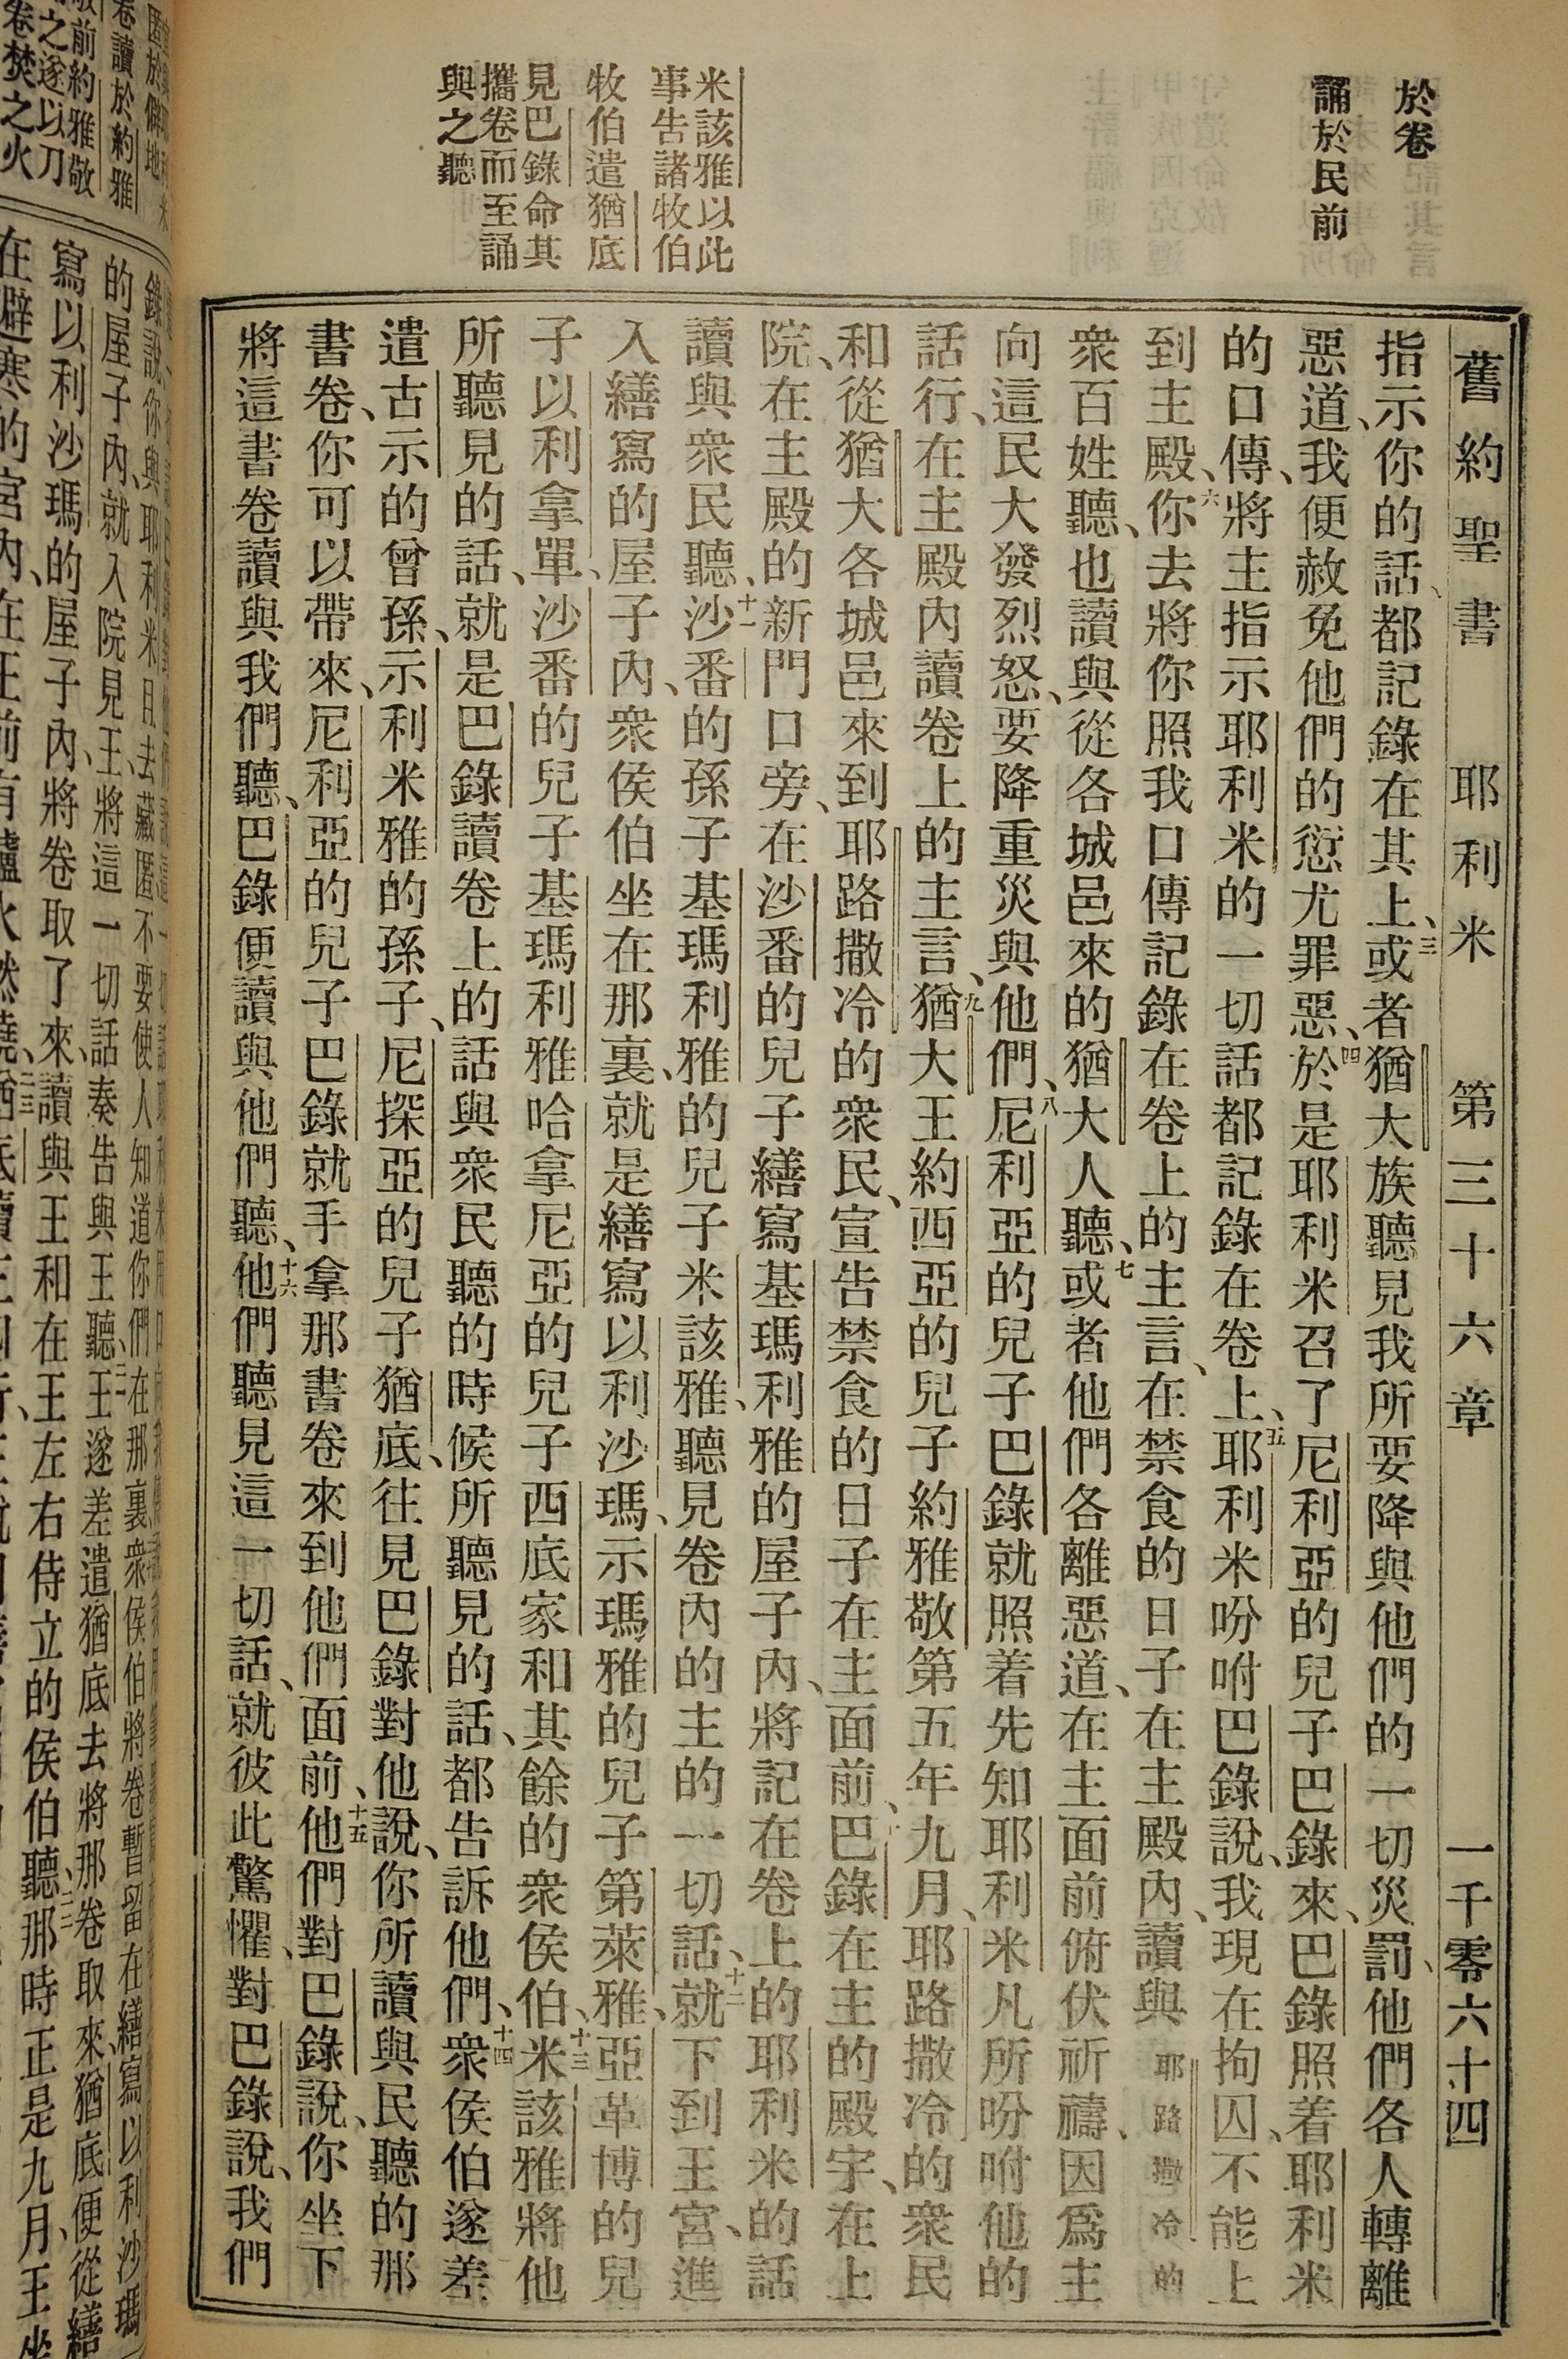 於卷
誦於民前
米該雅以此
事告諸牧伯
牧伯遣猶底
見巴錄命其
攜卷而至誦
與之聽
舊約聖書 耶利米 第三十六章 一千零六十四
指示你的話、都記錄在其上、三或者猶大族聽見我所要降與他們的一切災罰、他們各人轉離
惡道、我便赦免他們的愆尤罪惡、四於是耶利米召了尼利亞的兒子巴錄來、巴錄照着耶利米
的口傳、將主指示耶利米的一切話都記錄在卷上、五耶利米吩咐巴錄說、我現在拘囚、不能上
到主殿、六你去將你照我口傳記錄在卷上的主言、在禁食的日子在主殿內、讀與耶路撒冷的
衆百姓聽、也讀與從各城邑來的猶大人聽、七或者他們各離惡道、在主面前俯伏祈禱、因爲主
向這民大發烈怒、要降重災與他們、八尼利亞的兒子巴錄就照着先知耶利米凡所吩咐他的
話行、在主殿內讀卷上的主言、九猶大王約西亞的兒子約雅敬第五年九月、耶路撒冷的衆民
和從猶大各城邑來到耶路撒冷的衆民、宣告禁食的日子在主面前、十巴錄在主的殿宇、在上
院、在主殿的新門口旁、在沙番的兒子繕寫基瑪利雅的屋子內、將記在卷上的耶利米的話
讀與衆民聽、十一沙番的孫子基瑪利雅的兒子米該雅、聽見卷內的主的一切話、十二就下到王宮、進
入繕寫的屋子內、衆侯伯坐在那裏、就是繕寫以利沙瑪、示瑪雅的兒子第萊雅、亞革博的兒
子以利拿單、沙番的兒子基瑪利雅哈拿尼亞的兒子西底家和其餘的衆侯伯、十三米該雅將他
所聽見的話、就是巴錄讀卷上的話與衆民聽的時候所聽見的話、都告訴他們、十四衆侯伯遂差
遣古示的曾孫、示利米雅的孫子、尼探亞的兒子猶底、往見巴錄對他說、你所讀與民聽的那
書卷、你可以帶來、尼利亞的兒子巴錄就手拿那書卷來到他們面前、十五他們對巴錄說、你坐下
將這書卷讀與我們聽、巴錄便讀與他們聽、十六他們聽見這一切話、就彼此驚懼、對巴錄說、我們
卷讀於約雅
敬前約雅敬
之遂以刀
卷焚之火
的屋子內、就入院見王、將這一切話奏告與王聽、二一王遂差遣猶底去將那卷取來、猶底便從繕
寫以利沙瑪的屋子內、將卷取了來、讀與王和在王左右侍立的侯伯聽、二二那時正是九月、王坐